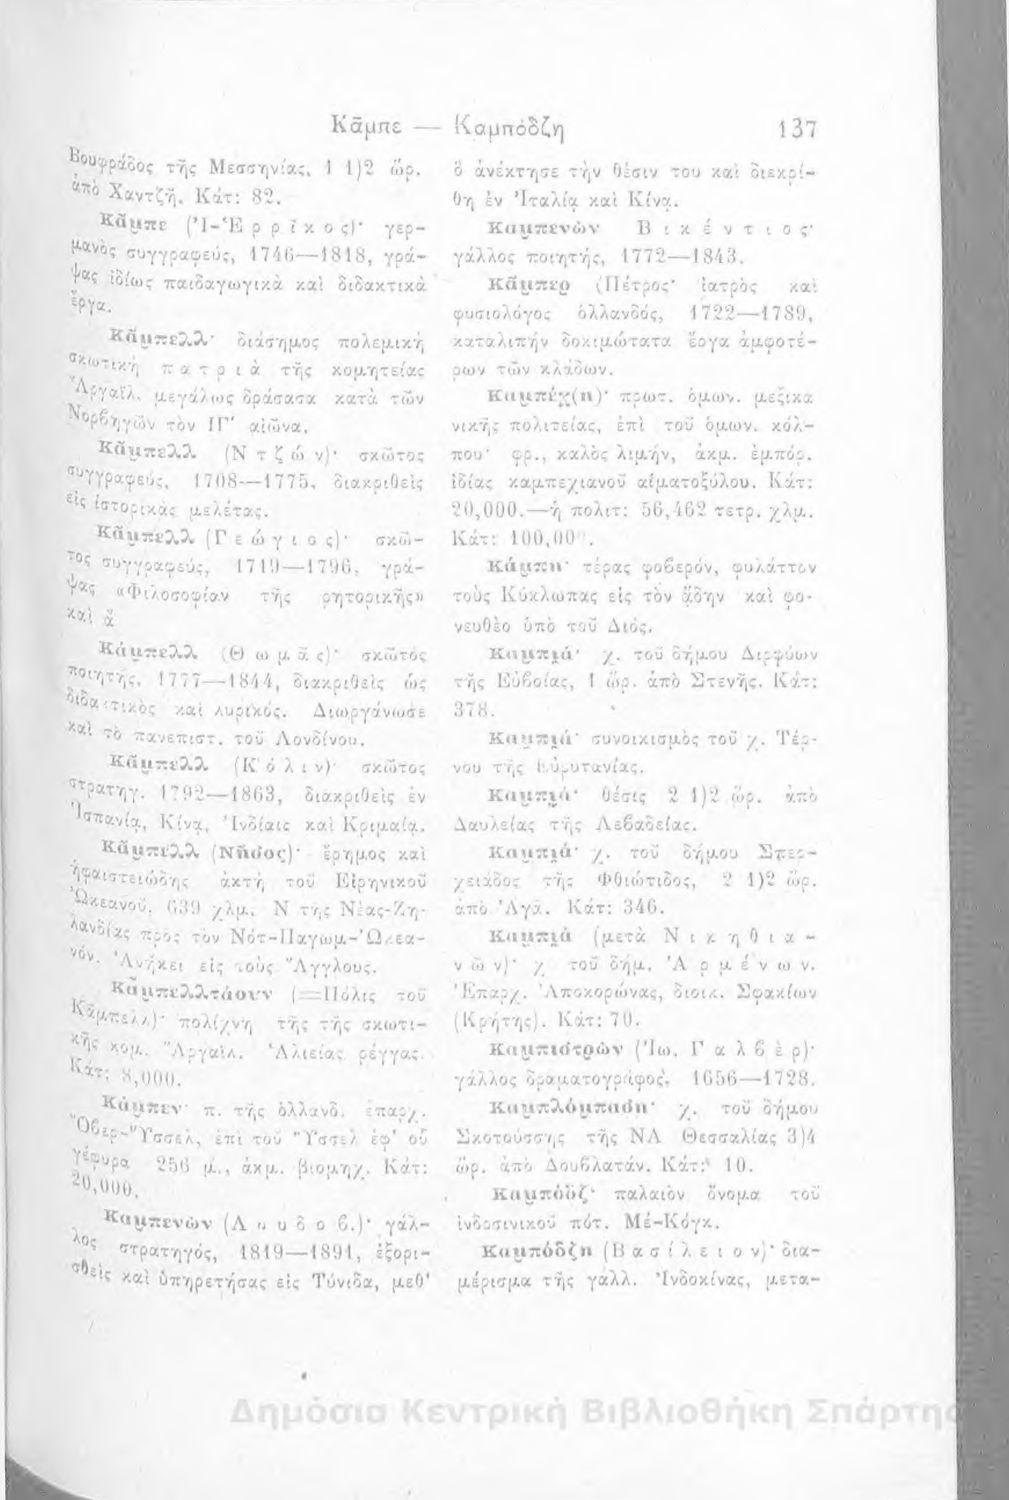 Κᾶμπε — Καμπόδζη 137
Βουφράδος τῆς Μεσσηνίας, 1 1)2 ὥρ.
ἀπὸ Χαντζῆ. Κάτ: 82.
Κᾶμπε (Ἰ-Ἑρρῖκος)· γερ-
μανὸς συγγραφεύς, 1746—1818, γρά-
ψας ἰδίως παιδαγωγικὰ καὶ διδακτικὰ
ἔργα.
Κᾶμπελλ· διάσημος πολεμικὴ
σκωτικὴ πατριὰ τῆς κομητείας
Ἀργαϊλ, μεγάλως δράσασα κατὰ τῶν
Νορβηγῶν τὸν ΙΓ′ αἰῶνα.
Κᾶμπελλ (Ντζών)· σκῶτος
συγγραφεύς, 1708—1775, διακριθεὶς
εἰς ἱστορικὰς μελέτας.
Κᾶμπελλ (Γεώγιος)· σκῶ-
τος συγγραφεύς, 1719—1796, γρά-
ψας «Φιλοσοφίαν τῆς ρητορικῆς»
καὶ ἄ
Κάμπελλ (Θωμᾶς)· σκῶτός
ποιητής, 1777—1844, διακριθεὶς ὡς
διδακτικὸς καὶ λυρικός. Διωργάνωσε
καὶ τὸ πανεπιστ. τοῦ Λονδίνου.
Κᾶμπελλ (Κόλιν)· σκῶτος
στρατηγ. 1792—1863, διακριθεὶς ἐν
Ἰσπανίᾳ, Κίνᾳ, Ἰνδίαις καὶ Κριμαίᾳ.
Κᾶμπελλ (Νῆσος)· ἔρημος καὶ
ἡφαιστειώδης ἀκτὴ τοῦ Εἰρηνικοῦ
Ὠκεανοῦ, 639 χλμ. Ν τῆς Νέας-Ζη-
λανδίας πρὸς τὸν Νότ-Παγωμ-Ὠκεα-
νόν. Ἀνήκει εἰς τοὺς Ἄγγλους.
Κᾶμπελλτάουν (=Πόλις τοῦ
Κᾶμπελλ)· πολίχνη τῆς τῆς σκωτι-
κῆς κομ. Ἄργαϊλ. Ἁλιείας ρέγγας.
Κάτ: 8,000.
Κάμπεν· π. τῆς ὁλλανδ. ἐπαρχ.
Ὄβερ-Ὕσσελ, ἐπὶ τοῦ Ὕσσελ ἐφ' οὗ
γέφυρα 256 μ., ἀκμ. βιομηχ. Κάτ:
20,000.
Καμπενών (Λουδοβ.)· γάλ-
λος στρατηγός, 1819—1891, ἐξορι-
σθεὶς καὶ ὑπηρετήσας εἰς Τύνιδα, μεθ'
ὃ ἀνέκτησε τὴν θέσιν του καὶ διεκρί-
θη ἐν Ἰταλίᾳ καὶ Κίνᾳ.
Καμπενὼν Βικέντιος·
γάλλος ποιητής, 1772—1843.
Κᾶμπερ (Πέτρος· ἰατρὸς καὶ
φυσιολόγος ὁλλανδός, 1722—1789,
καταλιπὴν δοκιμώτατα ἔργα ἀμφοτέ-
ρων τῶν κλάδων.
Καμπέχ(η)· πρωτ. ὁμων. μεξικα
νικῆς πολιτείας, ἐπὶ τοῦ ὁμων. κόλ-
που· φρ., καλὸς λιμήν, ἀκμ. ἐμπόρ.
ἰδίας καμπεχιανοῦ αἱματοξύλου. Κάτ:
20,000.—ἡ πολιτ: 56,462 τετρ. χλμ.
Κάτ: 100,00.
Κάμπη· τέρας φοβερόν, φυλάττον
τοὺς Κύκλωπας εἰς τὸν ᾅδην καὶ φο-
νευθὲο ὑπὸ τοῦ Διός.
Καμπιά· χ. τοῦ δήμου Διρφύων
τῆς Εὐβοίας, 1 ὥρ. ἀπὸ Στενῆς. Κάτ:
378.
Καμπιά· συνοικισμὸς τοῦ χ. Τέρ-
νου τῆς Εὐρυτανίας.
Καμπιά· θέσις 2 1)2 ὥρ. ἀπὸ
Δαυλείας τῆς Λεβαδείας.
Καμπιά· χ. τοῦ δήμου Σπερ-
χειάδος τῆς Φθιώτιδος, 2 1)2 ὥρ.
ἀπὸ Ἀγᾶ. Κάτ: 346.
Καμπιὰ (μετὰ Νικηθια-
νῶν)· χ τοῦ δήμ. Ἀρμένων.
Ἐπαρχ. Ἀποκορώνας, διοικ. Σφακίων
(Κρήτης). Κάτ: 70.
Καμπιστρὼν (Ἰω. Γαλβέρ)·
γάλλος δραματογράφος, 1656—1728.
Καμπλόμπαση· χ. τοῦ δήμου
Σκοτούσσης τῆς ΝΑ Θεσσαλίας 3)4
ὥρ. ἀπὸ Δουβλατάν. Κάτ: 10.
Καμπόδζ· παλαιὸν ὄνομα τοῦ
ἰνδοσινικοῦ πότ. Μέ-Κόγκ.
Καμπόδζη (Βασίλειον)· δια-
μέρισμα τῆς γαλλ. Ἰνδοκίνας, μετα-
Δημόσια Κεντρική Βιβλιοθήκη Σπάρτης